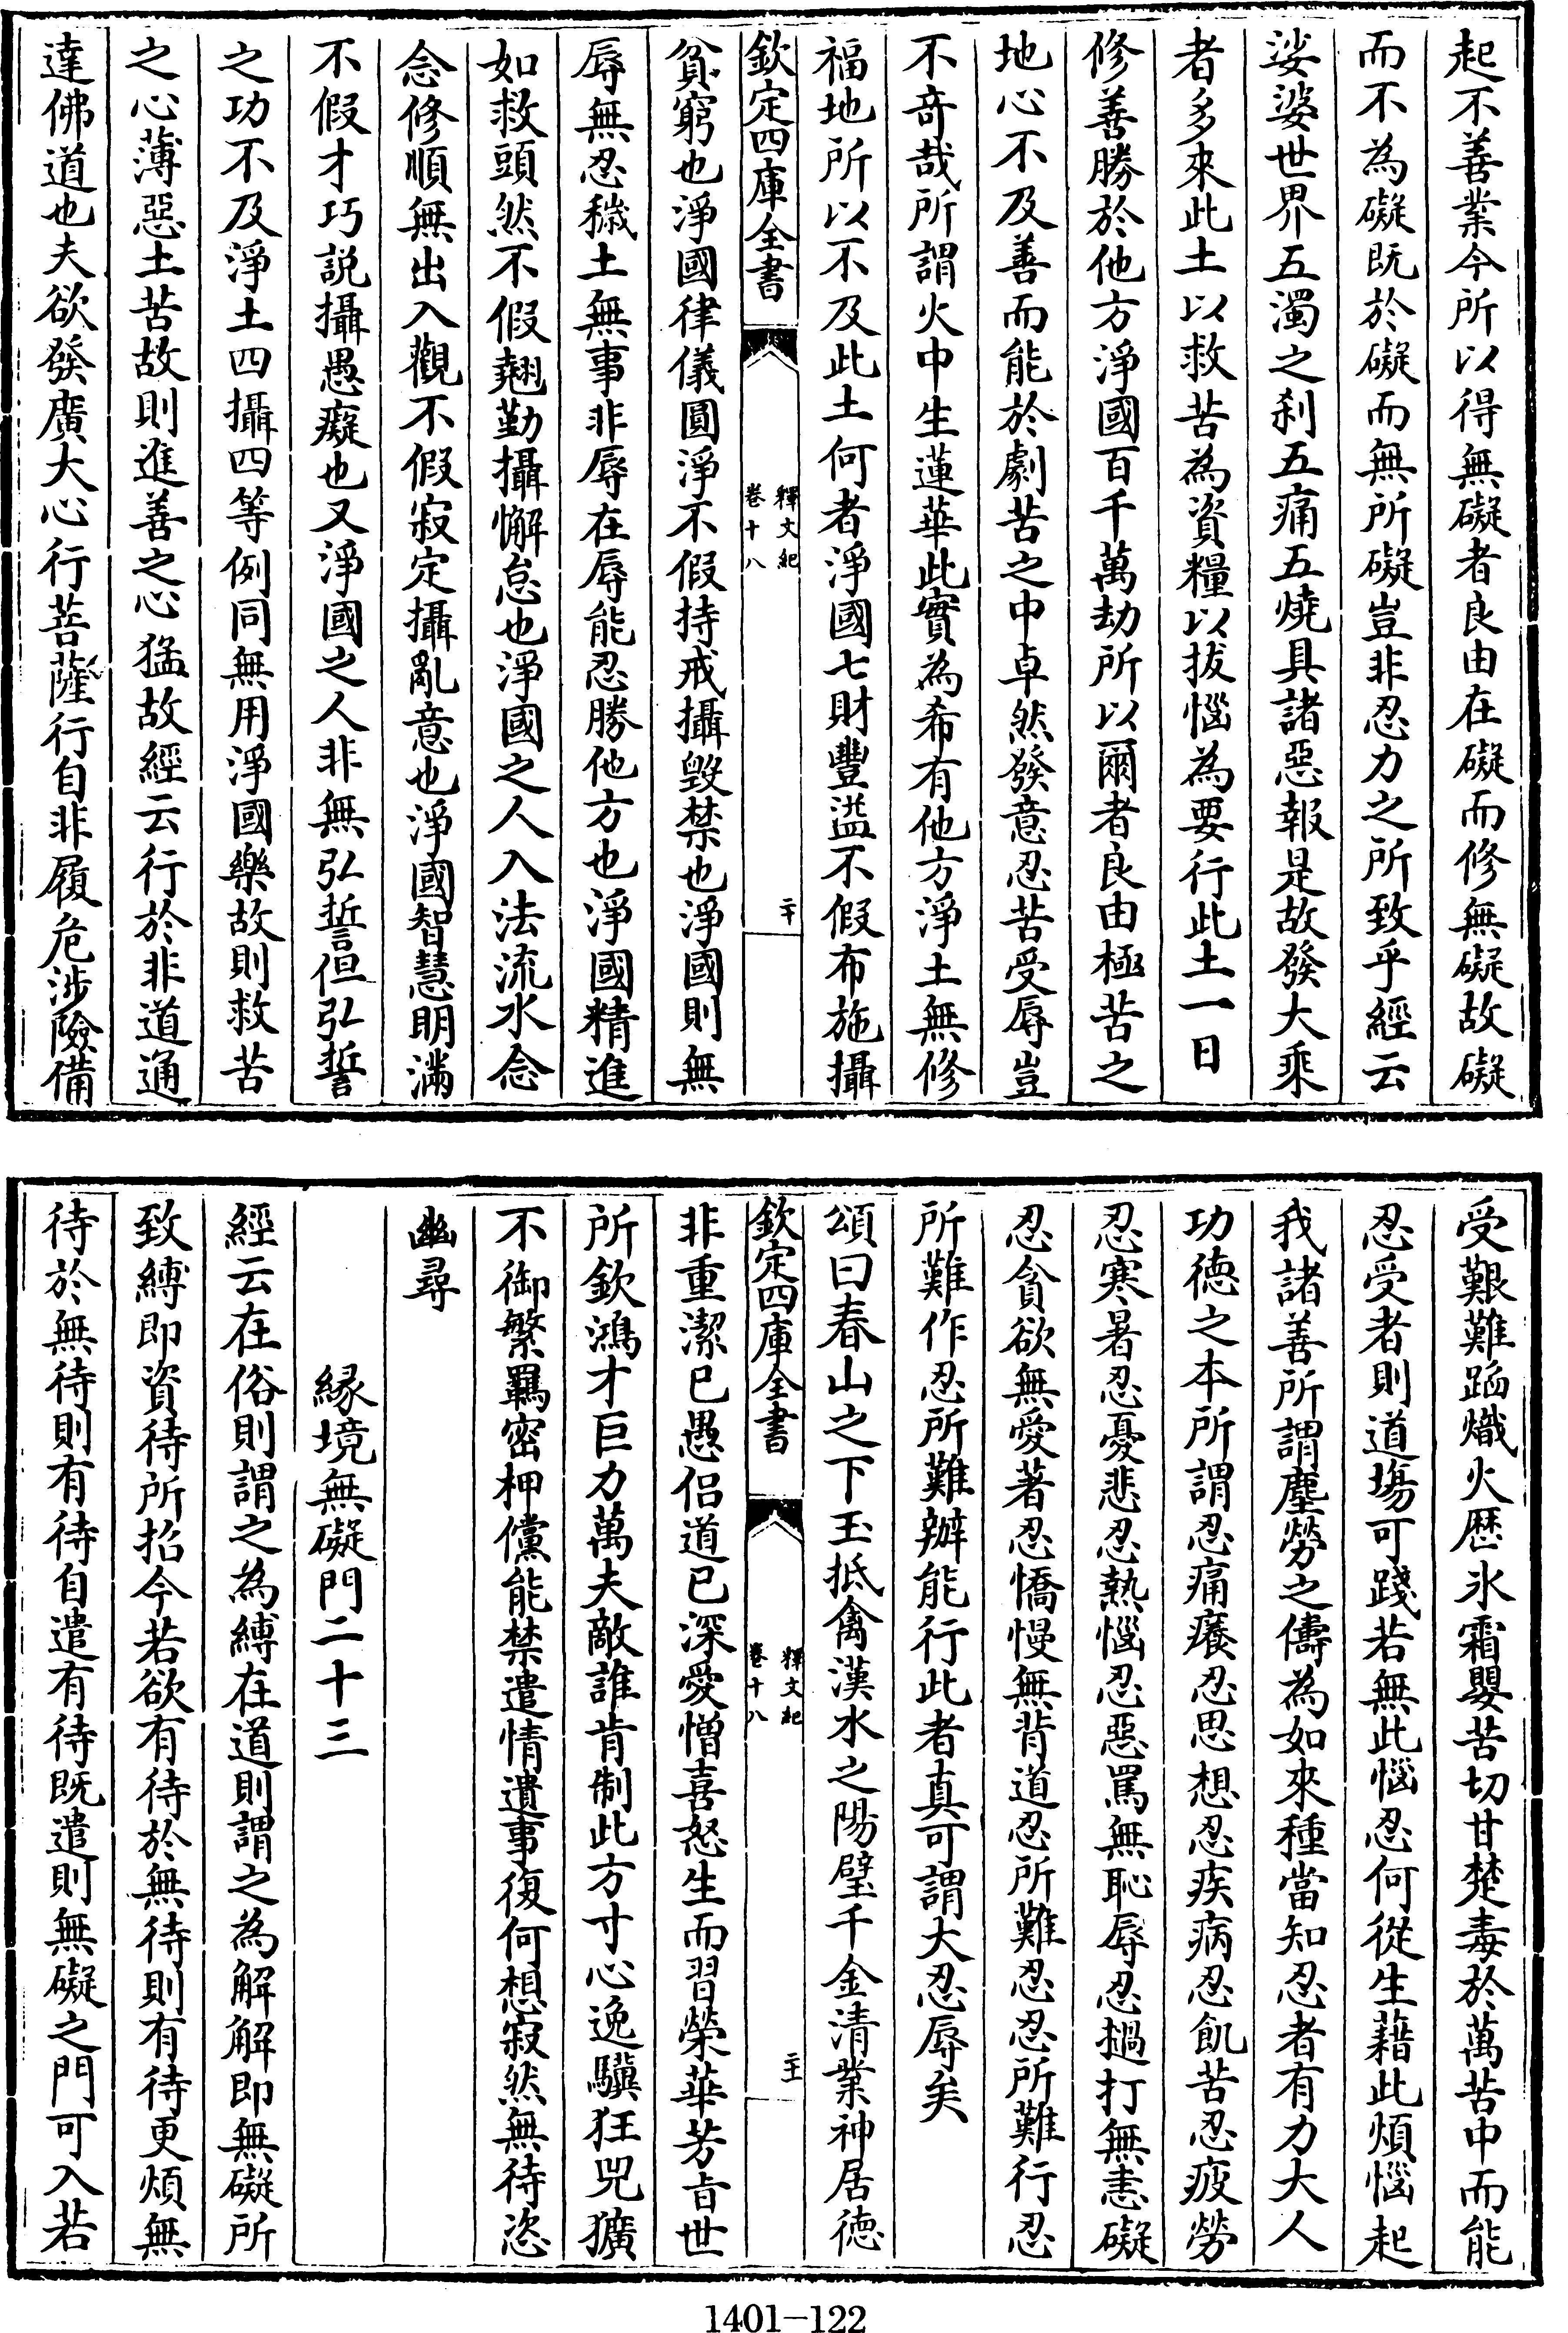 起不善業今所以得無礙者良由在礙而修無礙故礙
而不為礙既於礙而無所礙豈非忍力之所致乎經云
娑婆世界五濁之刹五痛五燒具諸惡報是故發大乘
者多來此土以救苦為資糧以拔惱為要行此土一日
修善勝於他方淨國百千萬劫所以爾者良由極苦之
地心不及善而能於劇苦之中卓然發意忍苦受辱豈
不奇哉所謂火中生蓮華此實為希有他方淨土無修
福地所以不及此土何者淨國七財豐溢不假布施攝
欽定四庫全書
釋文紀
卷十八
二十
貧窮也淨國律儀圓淨不假持戒攝毀禁也淨國則無
辱無忍穢土無事非辱在辱能忍勝他方也淨國精進
如救頭然不假翹勤攝懈怠也淨國之人入法流水念
念修順無出入觀不假寂定攝亂意也淨國智慧明滿
不假才巧説攝愚癡也又淨國之人非無弘誓但弘誓
之功不及淨土四攝四等例同無用淨國樂故則救苦
之心薄惡土苦故則進善之心猛故經云行於非道通
達佛道也夫欲發廣大心行菩薩行自非履危涉險備
受艱難蹈熾火歷氷霜嬰苦切甘楚毒於萬苦中而能
忍受者則道塲可踐若無此惱忍何從生藉此煩惱起
我諸善所謂塵勞之儔為如來種當知忍者有力大人
功德之本所謂忍痛癢忍思想忍疾病忍飢苦忍疲勞
忍寒暑忍憂悲忍熱惱忍惡罵無恥辱忍撾打無恚礙
忍貪欲無愛著忍憍慢無背道忍所難忍忍所難行忍
所難作忍所難辦能行此者真可謂大忍辱矣
頌曰春山之下玉抵禽漢水之陽璧千金清業神居德
欽定四庫全書
釋文紀
卷十八
二十一
非重潔已愚侣道已深愛憎喜怒生而習榮華芳旨世
所欽鴻才巨力萬夫敵誰肯制此方寸心逸驥狂兕獷
不御繁羈密柙儻能禁遣情遺事復何想寂然無待恣
幽尋
縁境無礙門二十三
經云在俗則謂之為縛在道則謂之為解解即無礙所
致縛即資待所招今若欲有待於無待則有待更煩無
待於無待則有待自遣有待既遣則無礙之門可入若
1401-122